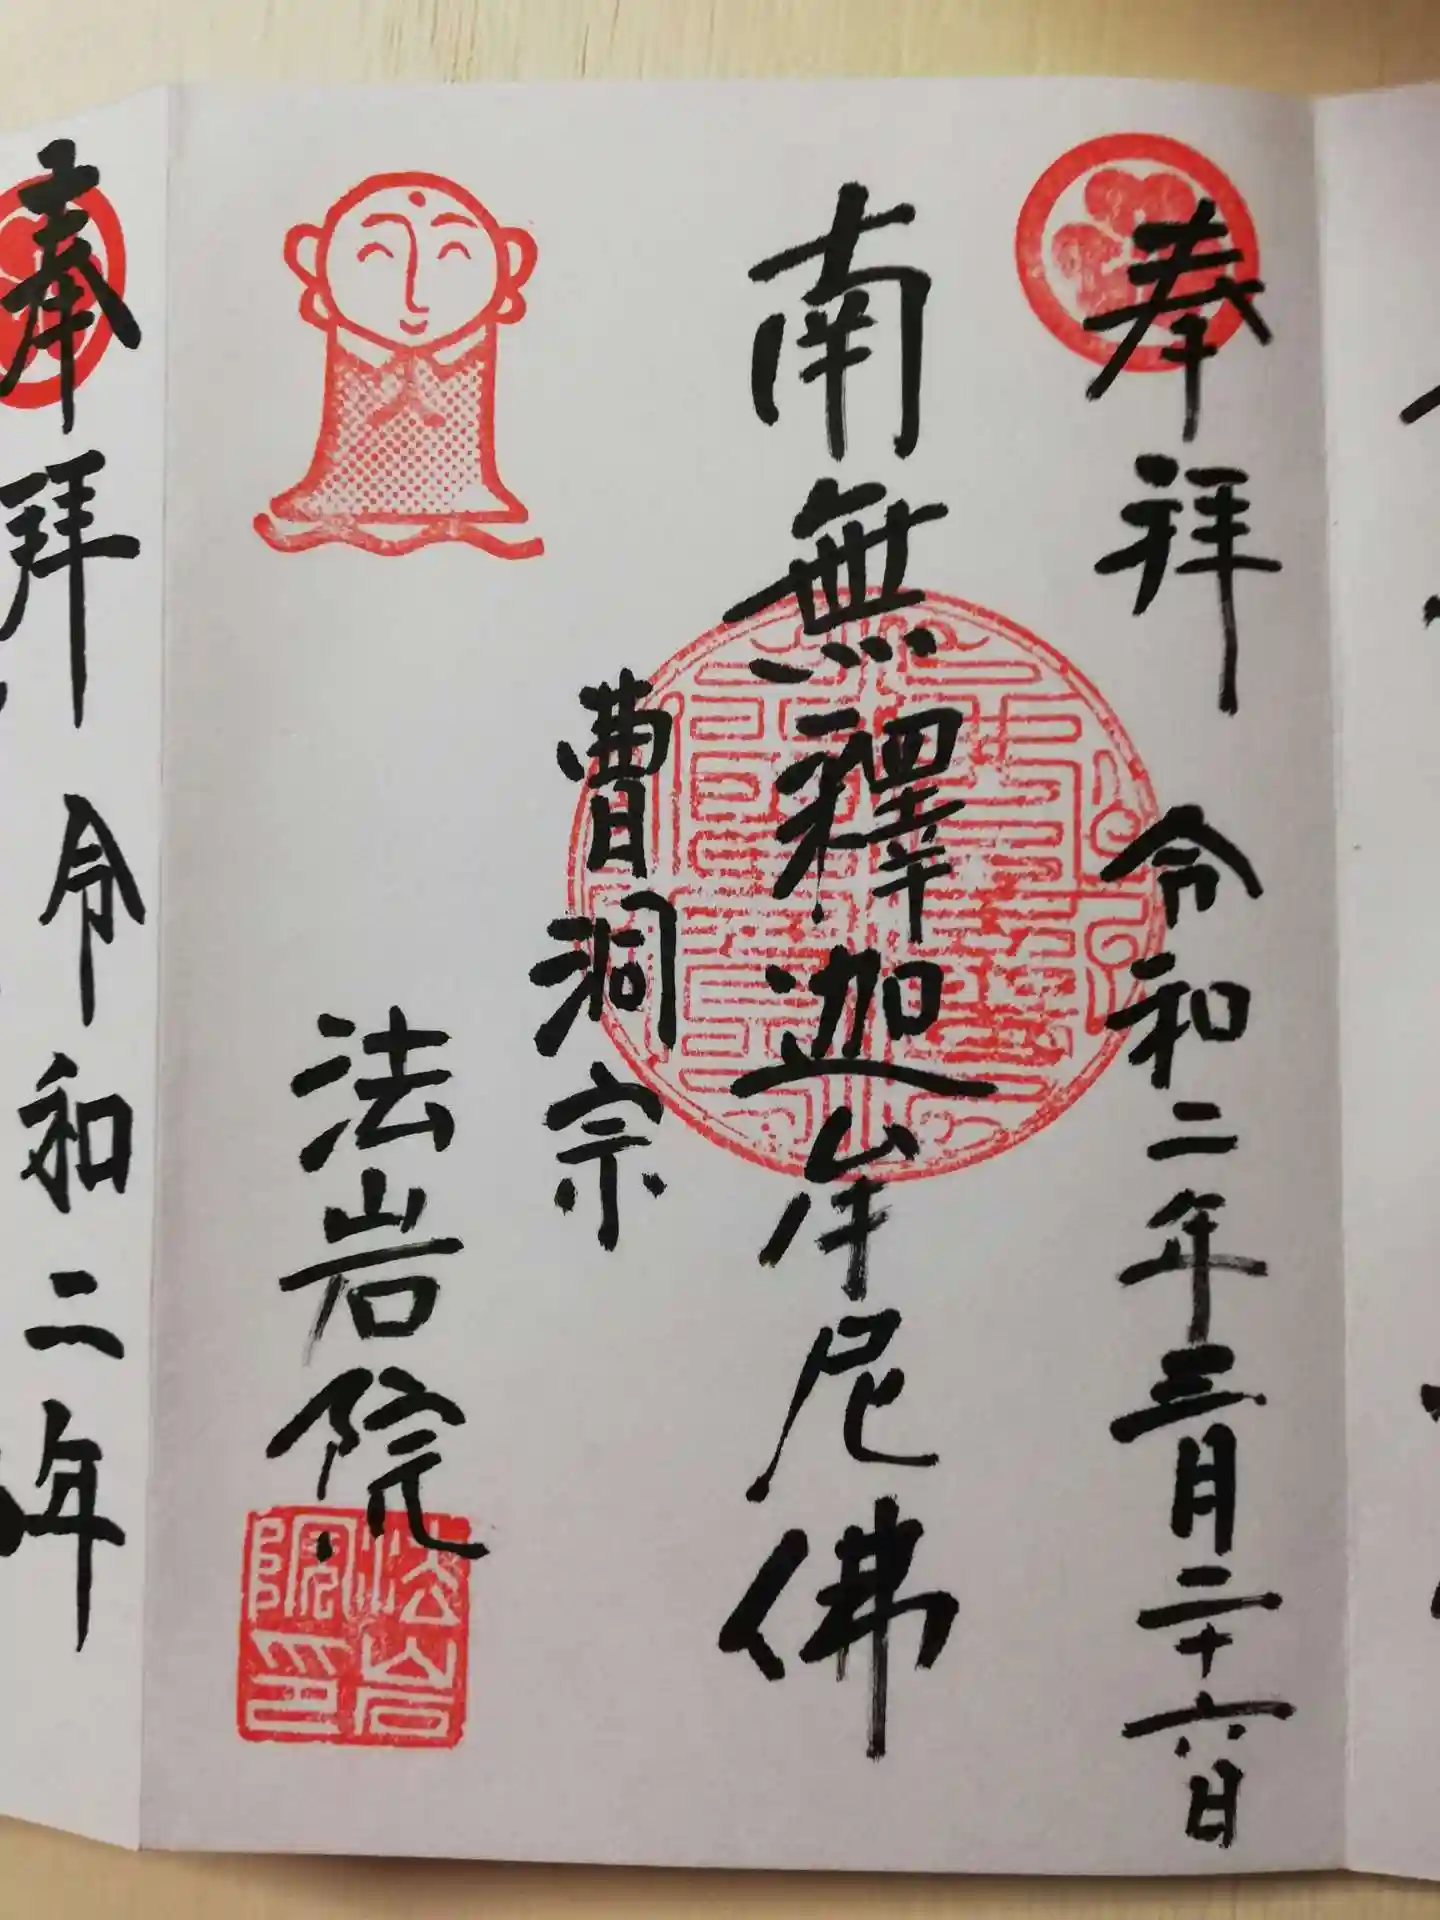 奉拜
令和二年三月二十六日
南無釋迦牟尼佛
曹洞宗
法岩院
法岩院印
奉拜
令和二年